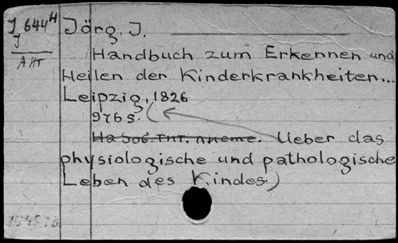 J 644 H Jörg, J.
J
АНТ
Handbuch zum Erkennen und
Heilen der Kinderkrankheiten...
Leipzig, 1826
976 S.
На доб. тит. листе. Ueber das
physiologische und pathologische
Leben des Kindes)